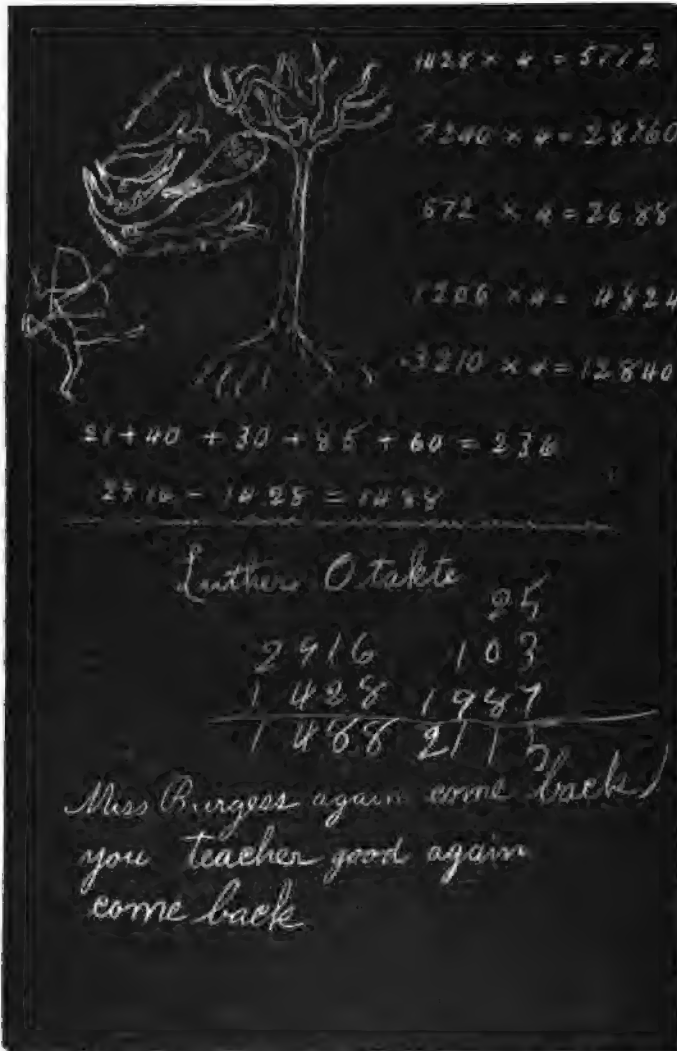 1428 × 4 = 5712
7240 × 4 = 28760
672 × 4 = 2688
1206 × 4 = 4824
3210 × 4 = 12840
21 + 40 + 30 + 85 + 60 = 236
2916 - 1428 = 1488
Luther Otakte
25
2916 103
1428 1987
1488 2115
Miss Burgess again come back
you teacher good again
come back